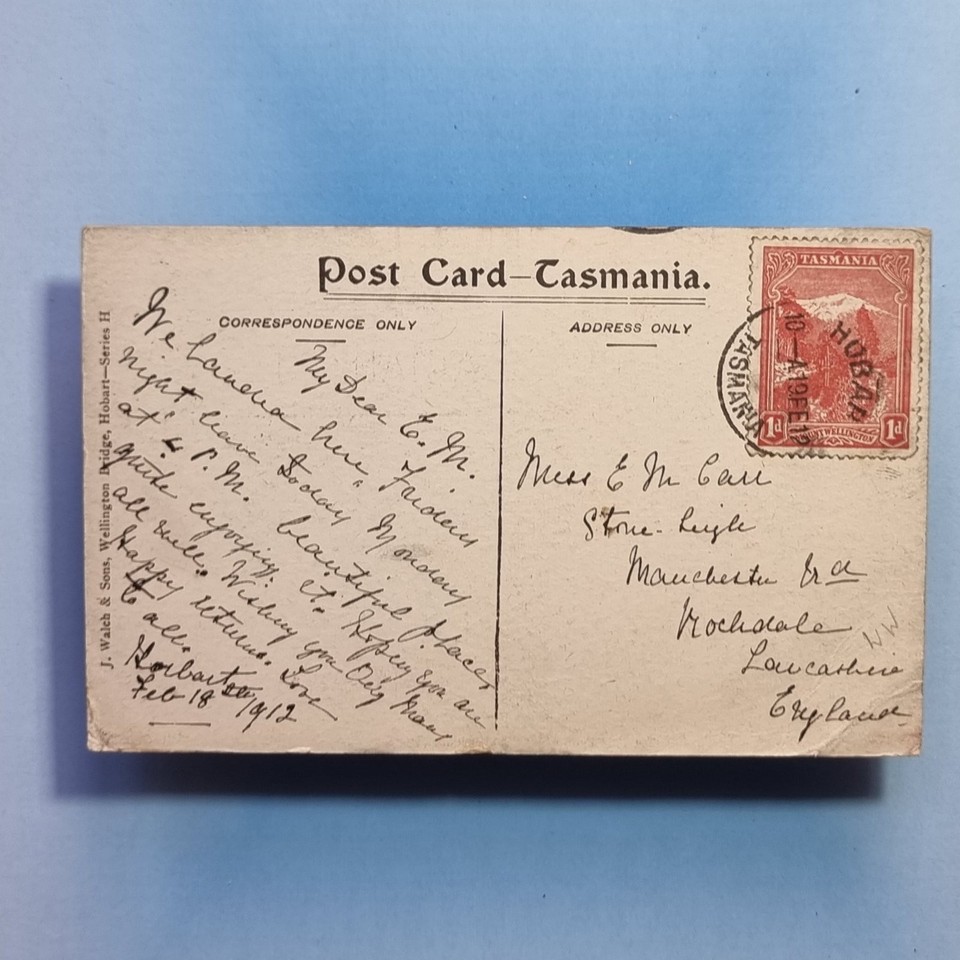 Post Card—Tasmania.
CORRESPONDENCE ONLY
ADDRESS ONLY
J. Walch & Sons, Wellington Bridge, Hobart—Series H
My Dear E. M.
We Landed here, Friday
night leave today Monday
at 4 P.M. beautiful place,
quite enjoying it. Hoping you are
all well. Wishing you Many
Happy returns. Love
to all.
Hobart
Feb 18 1912
Miss E M Carr
Stone-Leigh
Manchester Rd
Rochdale
Lancashire
England
NW
TASMANIA
1d
MOUNT WELLINGTON
1d
HOBART
10—A 19 FE 12
TASMANIA